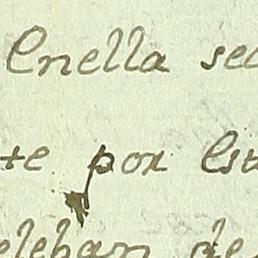 Enella sec
te por est
eleban de